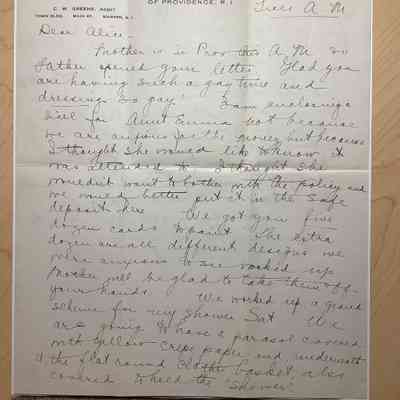 OF PROVIDENCE, R. I.
C. W. GREENE, AGENT
TOWN BLDG. MAIN ST. WARREN, R. I.
Tues A M
Dear Alice-
Mother is in Prov this A M so
Father opened your letter. Glad you
are having such a gay time and
dressing "so gay". I am enclosing a
bill for Aunt Emma not because
we are anxious for the money but because
I thought she would like to know it
was attended to. I thought she
wouldn't want to bother with the policy and
we would better put it in the safe
deposit here. We got you five
dozen cards to paint. The extra
dozen are all different designs we
were anxious to see worked up
Mother will be glad to take them off
your hands. We worked up a grand
scheme for my shower Sat. We
are going to have a parasol covered
with yellow crepe paper and underneath
it the flat round clothes basket, also
covered to hold the "shower".